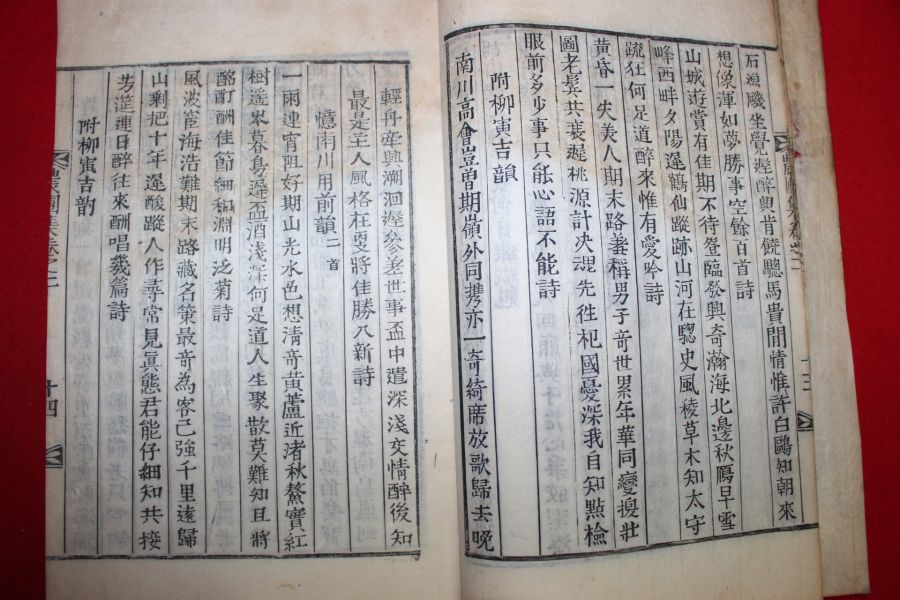 石漁磯坐覺遲醉望昔饒驄馬貴閒情惟許白鷗知朝來
想像渾如夢勝事空餘百首詩
山城遊賞有佳期不待登臨發興奇瀚海北邊秋鴈早雪
峰西畔夕陽遲鶴仙蹤跡山河在驄史風稜草木知太守
疏狂何足道醉來惟有愛吟詩
黃昏一失美人期末路羞稱男子奇世累年華同變擾壯
圖老鬂共衰遲桃源計决魂先徃杞國憂深我自知點檢
眼前多少事只能心語不能詩
附柳寅吉韻
南川高會豈曽期嶺外同携亦一奇綺席放歌歸去晩
輕舟牽興溯洄遲參差世事盃中遣深淺交情醉後知
最是主人風格在更將佳勝入新詩
憶南川用前韻二首
一雨連宵阻好期山光水色想淸竒黃蘆近渚秋鰲實紅
樹遥岑暮鳥遲盃酒淺深何是道人生聚散莫難知且將
酩酊酬佳節細和淵明泛菊詩
風波宦海浩難期末路藏名策最奇為客已強千里遠歸
山剩把十年遲酸蹤人作尋常見眞態君能仔細知共接
芳筵連日醉徃來酬唱幾篇詩
附柳寅吉韵
農圃集卷之二
十四